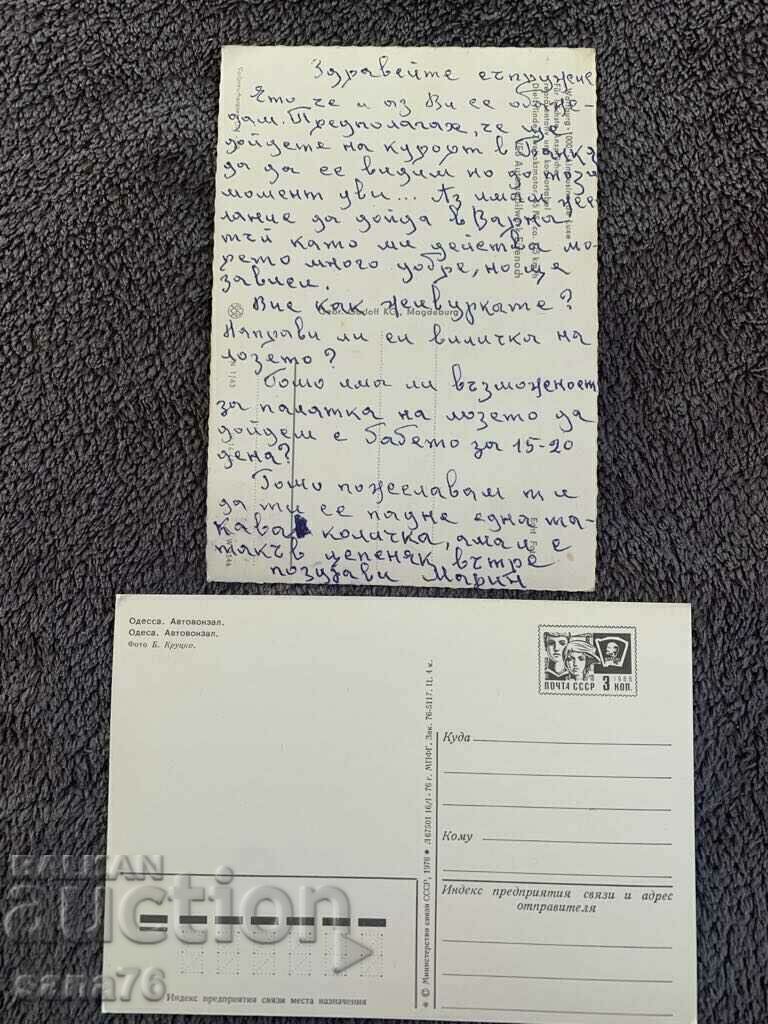 Здравейте съпрузие
Ето че и аз Ви се обаж-
дам. Предполагах, че ще
дойдете на курорт в Банкя
да да се видим но до този
момент уви... Аз имам же-
лание да дойда в Варна
тъй като ми действа мо-
рето много добре, но ще
зависи.
Вие как живуркате?
Направи ли си виличка на
лозето?
Тошо има ли възможност
за палатка на лозето да
дойдем с бабето за 15-20
дена?
Тошо пожелавам ти
да ти се падне една та-
кава количка, ама и с
такъв цепеняк вътре
поздрави Марин
Gebr. Garloff KG, Magdeburg
Одесса. Автовокзал.
Одеса. Автовокзал.
Фото Б. Круцко.
ПОЧТА СССР 3 КОП.
1966
© Министерство связи СССР, 1976 * Л 67501 16/I-76 г. МПФГ. Зак. 76-5117. Ц. 4 к.
Куда
Кому
Индекс предприятия связи и адрес
отправителя
Индекс предприятия связи места назначения
BALKAN
auction
cana76